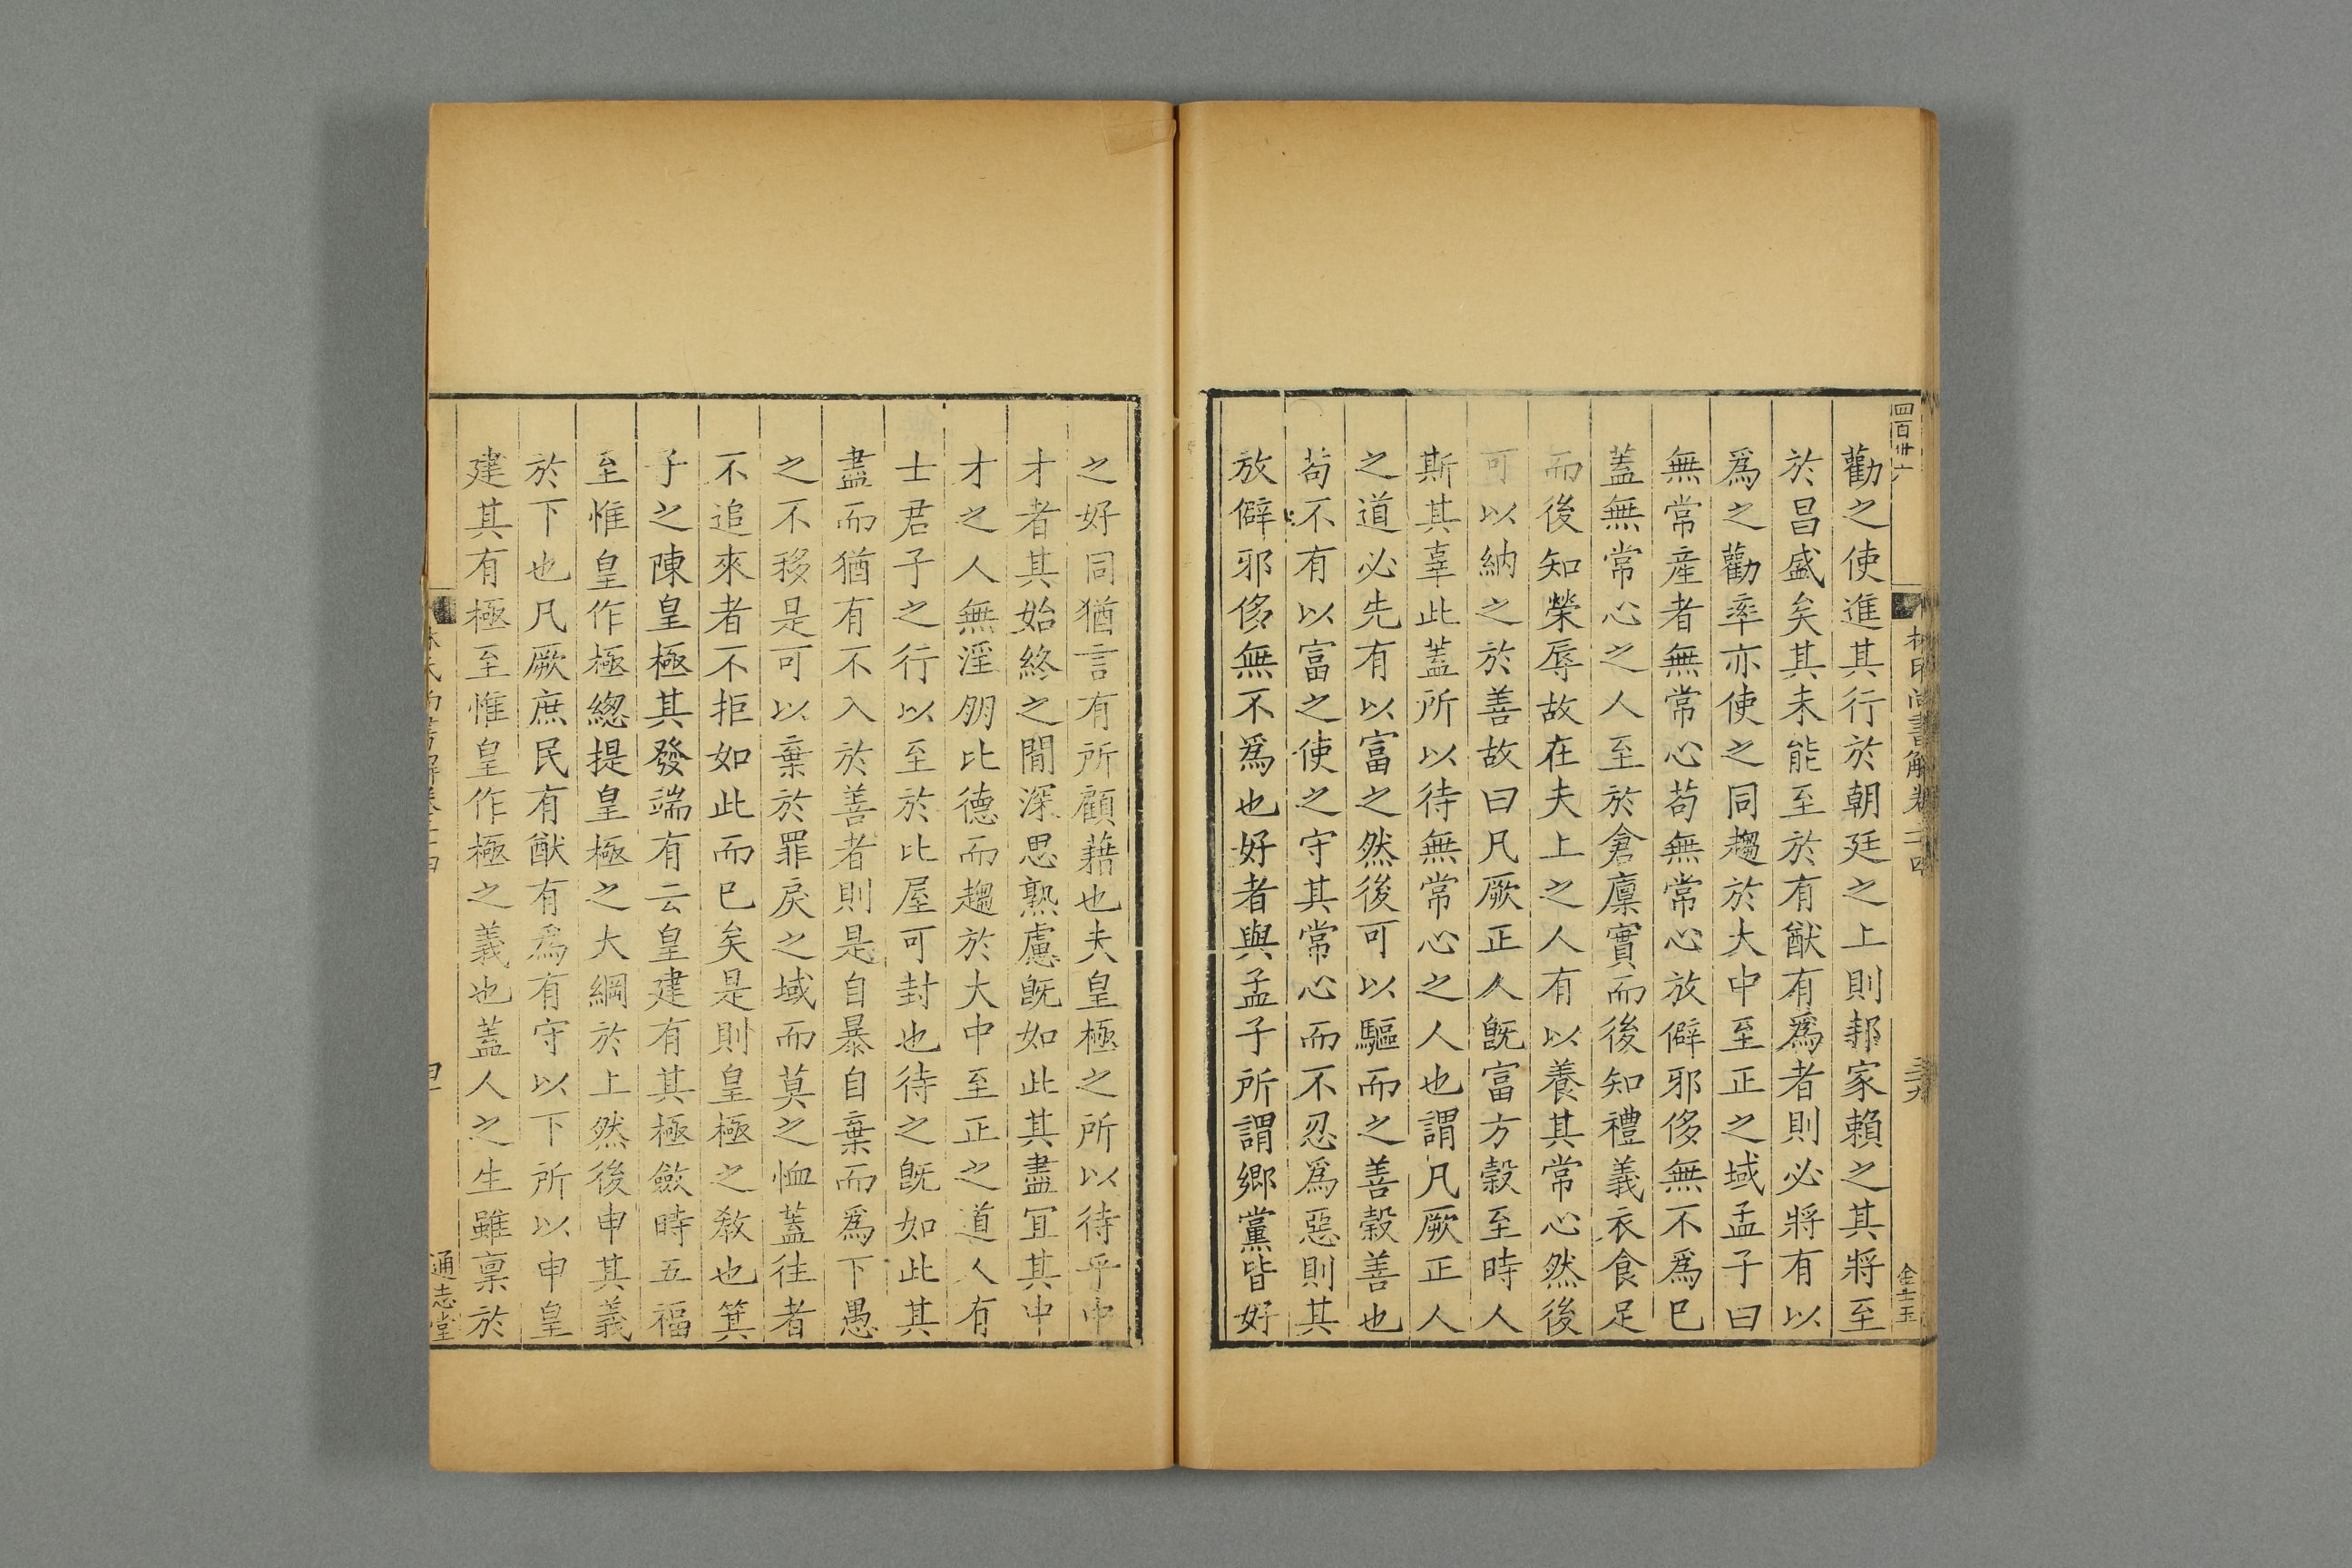 勸之使進其行於朝廷之上則邦家賴之其將至
於昌盛矣其未能至於有猷有爲者則必將有以
爲之勸率亦使之同趨於大中至正之域孟子曰
無常産者無常心苟無常心放僻邪侈無不爲已
蓋無常心之人至於倉廩實而後知禮義衣食足
而後知榮辱故在夫上之人有以養其常心然後
可以納之於善故曰凡厥正人旣富方榖至時人
斯其辜此蓋所以待無常心之人也謂凡厥正人
之道必先有以富之然後可以驅而之善榖善也
苟不有以富之使之守其常心而不忍爲惡則其
放僻邪侈無不爲也好者與孟子所謂鄉黨皆好
之好同猶言有所顧藉也夫皇極之所以待乎中
才者其始終之閒深思熟慮旣如此其盡冝其中
才之人無淫朋比德而趨於大中至正之道人有
士君子之行以至於比屋可封也待之旣如此其
盡而猶有不入於善者則是自暴自棄而爲下愚
之不移是可以棄於罪戾之域而莫之恤蓋往者
不追來者不拒如此而已矣是則皇極之敎也箕
子之陳皇極其發端有云皇建有其極斂時五福
至惟皇作極總提皇極之大綱於上然後申其義
於下也凡厥庶民有猷有爲有守以下所以申皇
建其有極至惟皇作極之義也蓋人之生雖禀於
通志堂